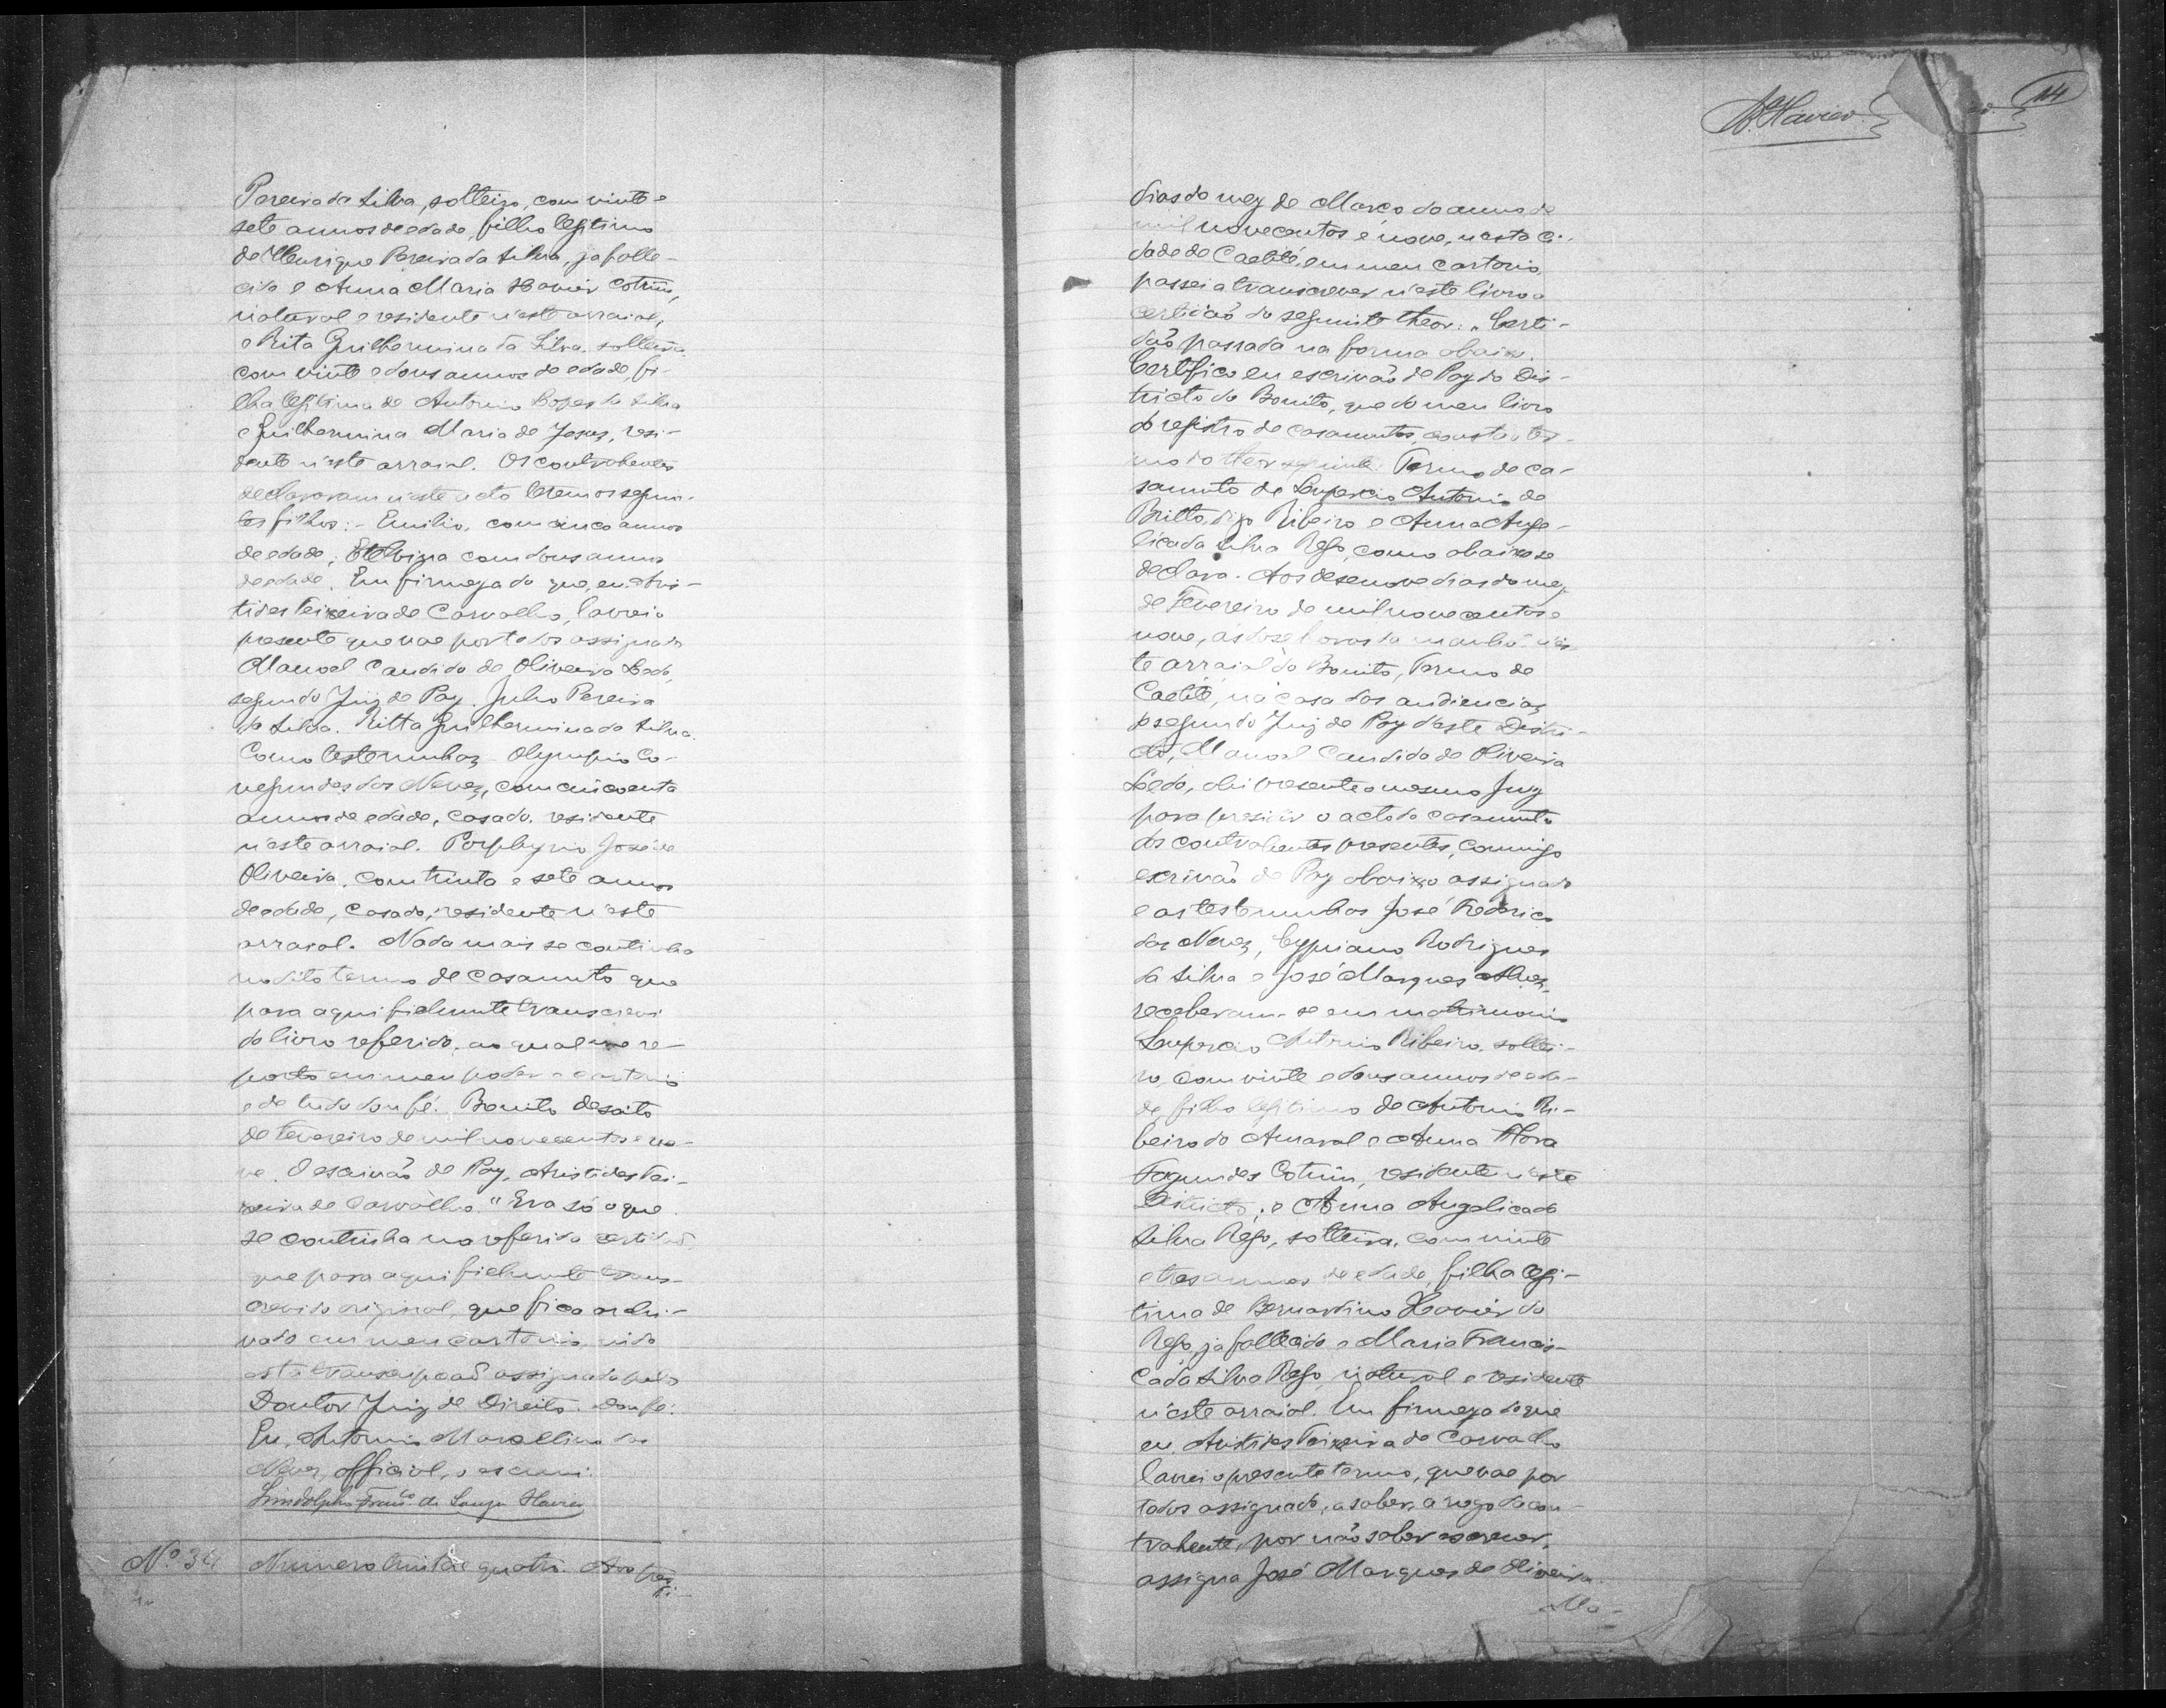 Pereira da Silva, solteiro, com vinte e
sete annos de edade, filho legitimo
de Henrique Pereira da Silva, ja falle-
cido e Anna Maria Xavier Cotrim,
natural e residente n'este arraial,
e Rita Guilhermina da Silva, solteira
com vinte e dous annos de edade, fi-
lha legitima de Antonio Lopes da Silva
e Guilhermina Maria de Jesus, resi-
dente n'este arraial. Os contrahentes
declararam n'este acto terem os seguin-
tes filhos: - Emilio, com cinco annos
de edade, Etelvina com dous annos
de edade. Em firmeza do que, eu Aris-
tides Teixeira de Carvalho, lavrei o
presente que vae por todos assignado
Manoel Candido de Oliveira Ledo,
segundo Juiz de Paz. Julio Pereira
da Silva. Ritta Guilhermina da Silva.
Como testemunhas Olympio Co-
negundes das Neves, com cincoenta
annos de edade, casado, residente
n'este arraial. Porphyrio José de
Oliveira, com trinta e sete annos
de edade, casado, residente n'este
arraial. Nada mais se continha
no dito termo de casamento que
para aqui fielmente transcrevi
do livro referido, ao qual me re-
porto em meu poder e cartorio
e de tudo dou fé. Bonito desoito
de Fevereiro de mil novecentos e no-
ve. O escrivão de Paz, Aristides Tei-
xeira de Carvalho." Era só o que
se continha na referida certidão,
que para aqui fielmente trans-
crevi do original, que fica archi-
vado em meu cartorio, indo
esta transcripção assignada pelo
Doutor Juiz de Direito. Dou fé.
Eu, Antonio Marcellino das
Neves, official, o escrevi.
Lindolpho Franco de Souza Xavier
Nº 34 Numero trinta e quatro. Aos tres
Xavier 14
dias do mez de Março do anno de
mil novecentos e nove, n'esta Ci-
dade de Caetité, em meu cartorio,
passei a transcrever n'este livro a
certidão do seguinte theor: "Certi-
dão passada na forma abaixo.
Certifico eu escrivão de Paz do Dis-
tricto do Bonito, que do meu livro
de registro de casamentos, consta o ter-
mo do theor seguinte: Termo de ca-
samento de Lupercio Antonio de
Britto, digo Ribeiro e Anna Ange-
lica da Silva Rego, como abaixo se
declara. Aos desenove dias do mez
de Fevereiro de mil novecentos e
nove, ás dose horas da manhã n'es-
te arraial do Bonito, Termo de
Caetité, na casa das audiencias,
o segundo Juiz de Paz d'este Distri-
cto, Manoel Candido de Oliveira
Ledo, ahi presente o mesmo Juiz
para presidir o acto do casamento
dos contrahentes presentes, commigo
escrivão de Paz abaixo assignado
e as testemunhas José Frederico
das Neves, Cypriano Rodrigues
da Silva e José Marques Alves,
receberam-se em matrimonio
Lupercio Antonio Ribeiro, soltei-
ro, com vinte e dous annos de eda-
de, filho legitimo de Antonio Ri-
beiro do Amaral e Anna Flora
Fagundes Cotrim, residente n'este
Districto; e Anna Angelica da
Silva Rego, solteira, com vinte
e tres annos de edade, filha legi-
tima de Bernardino Xavier do
Rego, ja fallecido e Maria Francis-
ca da Silva Rego, natural e residente
n'este arraial. Em firmeza do que
eu, Aristides Teixeira de Carvalho
lavrei o presente termo, que vae por
todos assignado, a saber, a rogo da con-
trahente, por não saber escrever,
assigna José Marques de Oliveira.
Ma-